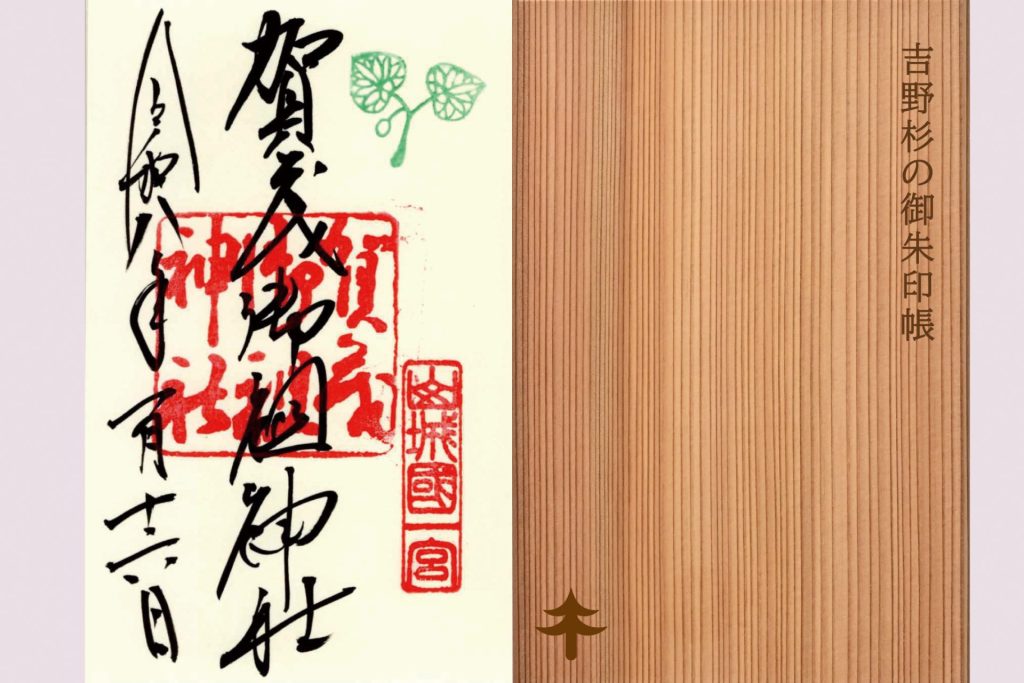 吉野杉の御朱印帳
山城國一宮
賀茂御祖神社
賀茂
御祖
神社
令和八年一月十六日